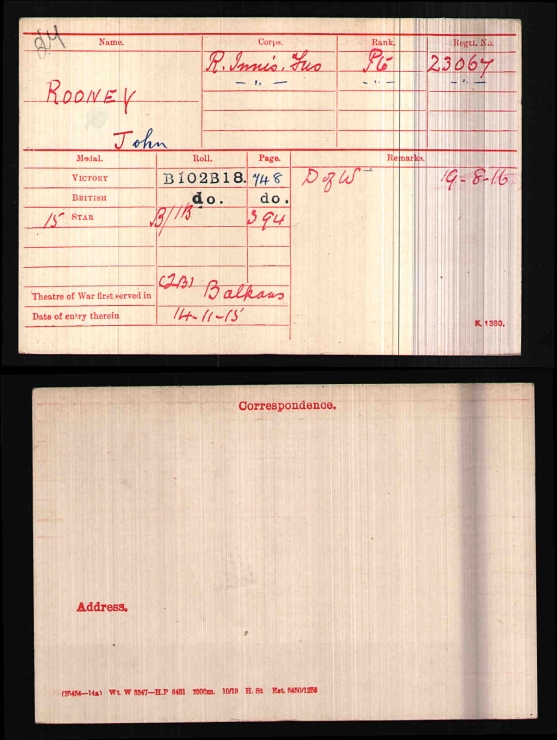 24
Name. Corps. Rank. Regtl. No.
R. Innis. Fus Pte 23067
- " - - " - - " -
ROONEY
John
Medal. Roll. Page. Remarks.
VICTORY B102B18. 748 D of W 19-8-16
BRITISH do. do.
15 STAR B/11B 394
(2B) Balkans
Theatre of War first served in
Date of entry therein 14-11-15
K. 1380.
Correspondence.
Address.
Wt. W 5347—H.P 6451 2000m. 10/19 H. St